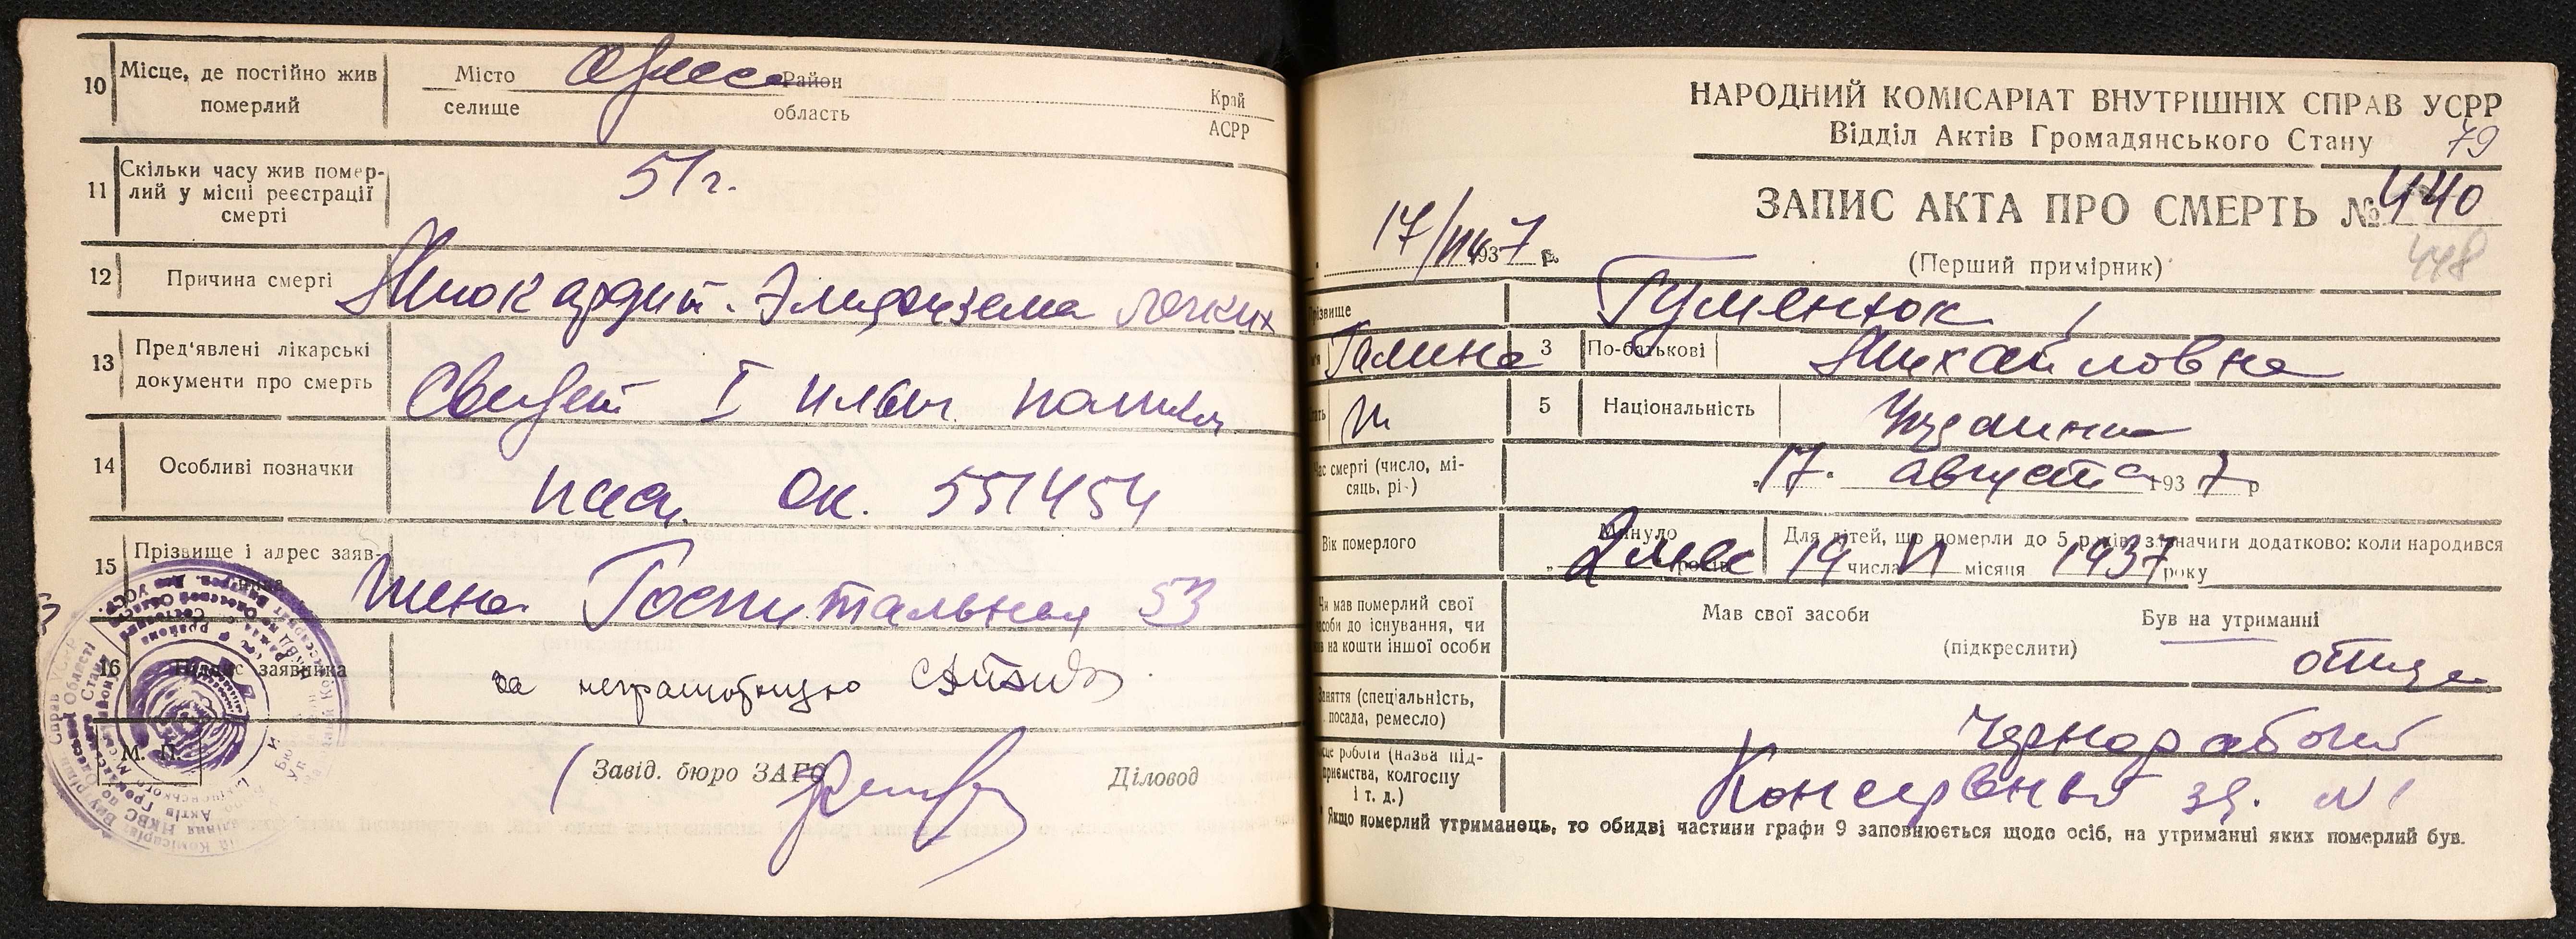 10
Місце, де постійно жив
померлий
Місто
селище
Одесса
Район
область
Край
АСРР
11
Скільки часу жив помер-
лий у місці реєстрації
смерті
51 г.
12
Причина смерті
Миокардит. Эмфизема легких
13
Пред'явлені лікарські
документи про смерть
Свидет I
14
Особливі позначки
пасп. Ок. 551454
15
Прізвище і адрес заяв-
Госпитальная 53
16
Підпис заявника
за неграмотную
М. П.
Завід. бюро ЗАГС
Діловод
НАРОДНИЙ КОМІСАРІАТ ВНУТРІШНІХ СПРАВ УСРР
Відділ Актів Громадянського Стану
79
ЗАПИС АКТА ПРО СМЕРТЬ № 440
448
17/VIII 1937 р.
(Перший примірник)
різвище
Гуменюк
Галина
3
По-батькові
Михайловна
5
Національність
ас смерті (число, мі-
сяць, рік)
17. августа 1937 р
Вік померлого
Минуло
2 мес
Для дітей, що померли до 5 років, зазначити додатково: коли народився
19 числа VI місяця 1937 року
и мав померлий свої
соби до існування, чи
на кошти іншої особи
Мав свої засоби
Був на утриманні
(підкреслити)
отца
аняття (спеціальність,
посада, ремесло)
Чернорабочий
сце роботи (назва під-
приємства, колгоспу
і т. д.)
Консервный зд. N 1
Якщо померлий утриманець, то обидві частини графи 9 заповнюється щодо осіб, на утриманні яких померлий був.